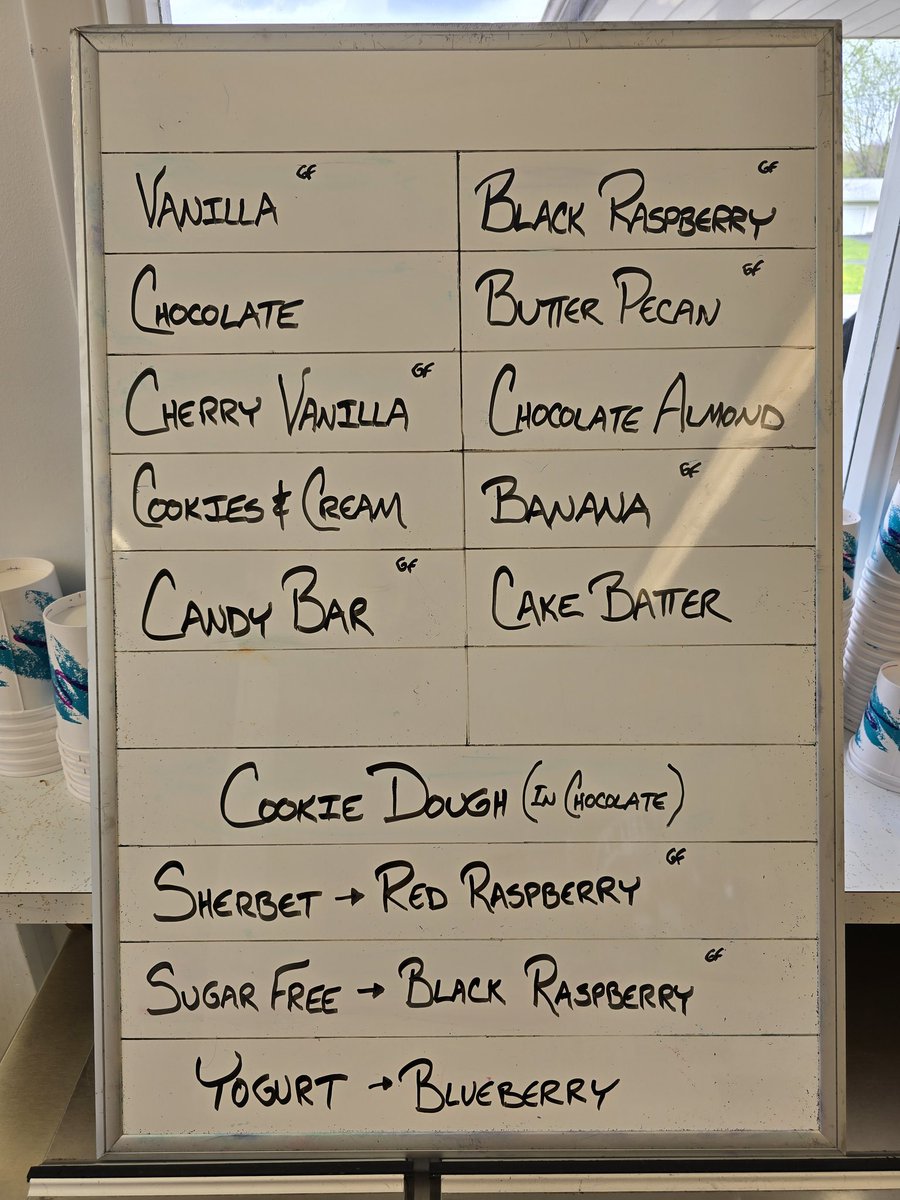 VANILLA GF
BLACK RASPBERRY GF
CHOCOLATE
BUTTER PECAN GF
CHERRY VANILLA GF
CHOCOLATE ALMOND
COOKIES & CREAM
BANANA GF
CANDY BAR GF
CAKE BATTER
COOKIE DOUGH (IN CHOCOLATE)
SHERBET → RED RASPBERRY GF
SUGAR FREE → BLACK RASPBERRY GF
YOGURT → BLUEBERRY